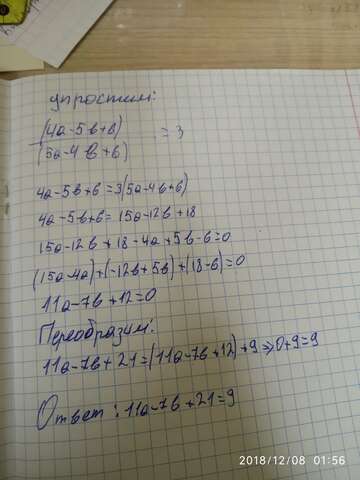 упростим:
(4a-5b+6)
(5a-4b+6) = 3
4a-5b+6=3(5a-4b+6)
4a-5b+6=15a-12b+18
15a-12b+18-4a+5b-6=0
(15a-4a)+(-12b+5b)+(18-6)=0
11a-7b+12=0
Переобразим:
11a-7b+21=(11a-7b+12)+9⇒0+9=9
Ответ: 11a-7b+21=9
2018/12/08 01:56